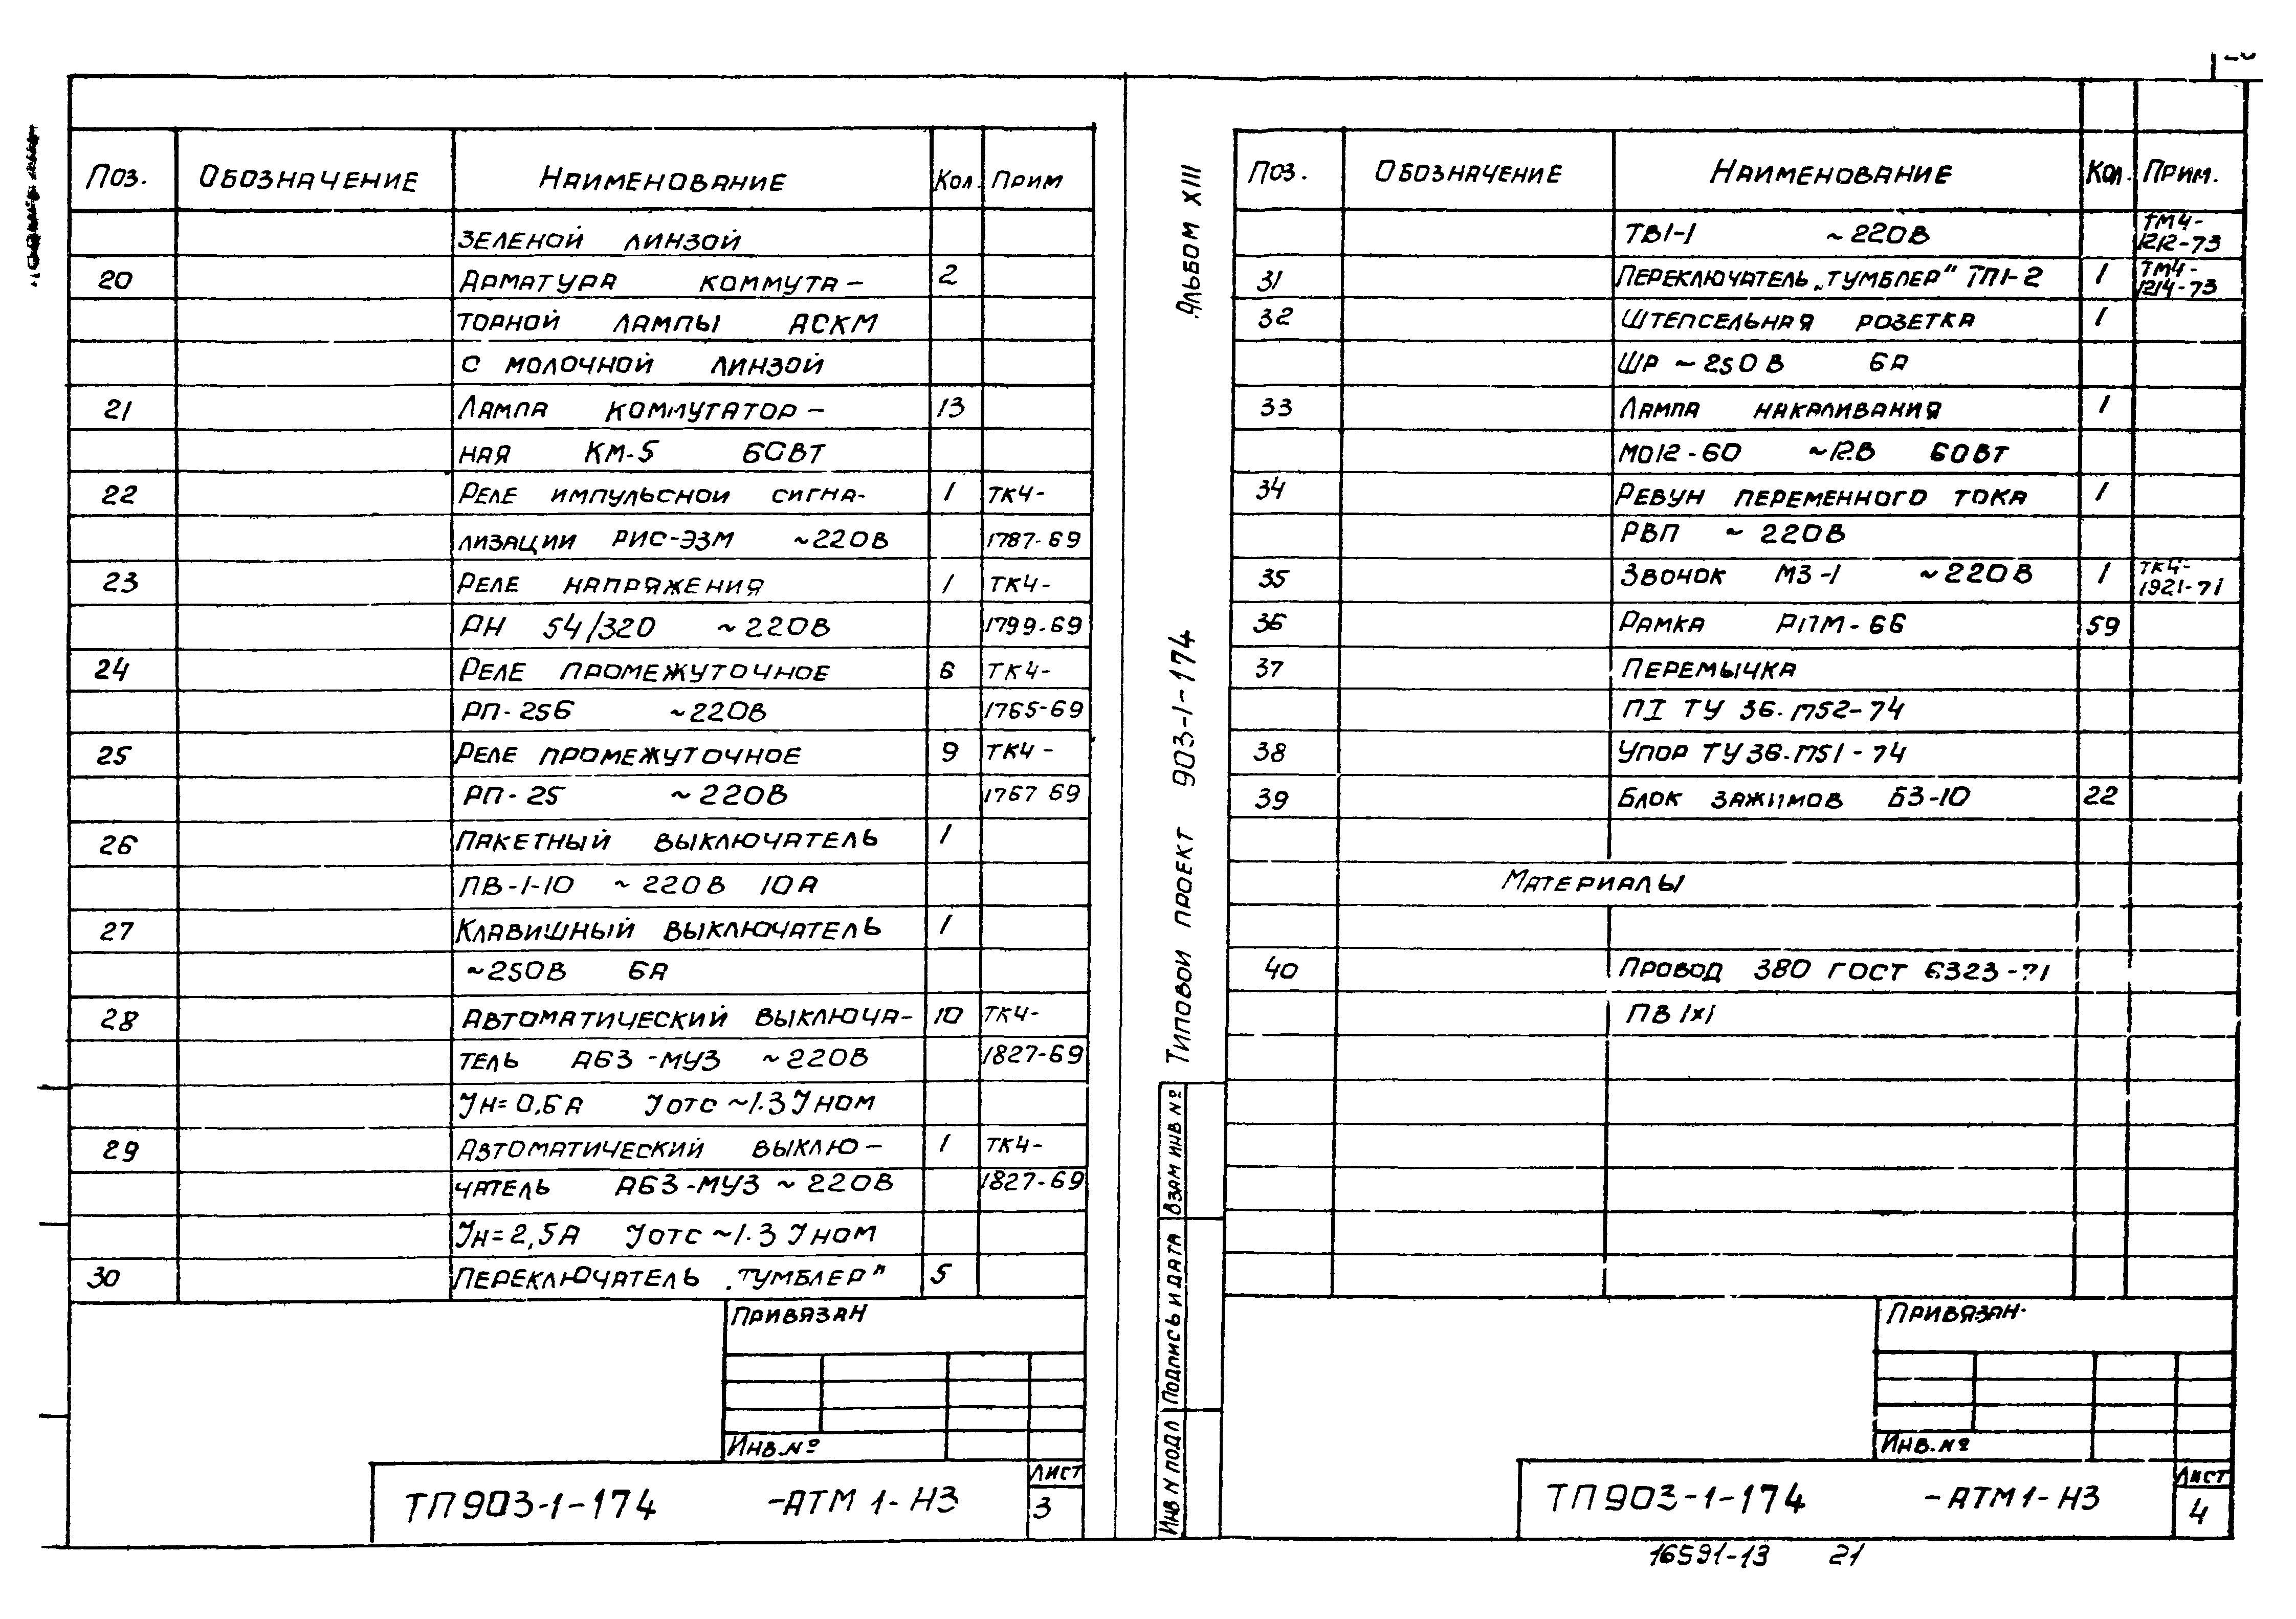 Поз. Обозначение Наименование Кол. Прим
зеленой линзой
20 Арматура коммута- 2
торной лампы АСКМ
с молочной линзой
21 Лампа коммутатор- 13
ная КМ-5 60Вт
22 Реле импульсной сигна- 1 ТК4-
лизации РИС-ЭЗМ ~220В 1787-69
23 Реле напряжения 1 ТК4-
РН 54/320 ~220В 1799-69
24 Реле промежуточное 6 ТК4-
РП-256 ~220В 1765-69
25 Реле промежуточное 9 ТК4-
РП-25 ~220В 1767 69
26 Пакетный выключатель 1
ПВ-1-10 ~220В 10А
27 Клавишный выключатель 1
~250В 6А
28 Автоматический выключа- 10 ТК4-
тель АБЗ-МУЗ ~220В 1827-69
Јн=0,6А Јотс~1.3Јном
29 Автоматический выклю- 1 ТК4-
чатель АБЗ-МУЗ ~220В 1827-69
Јн=2,5А Јотс~1.3Јном
30 Переключатель „Тумблер" 5
Привязан
Инв.№
ТП903-1-174 -АТМ1-Н3
Лист
3
Альбом XIII
Типовой проект 903-1-174
Взам инв №
Подпись и дата
Инв N подл
Поз. Обозначение Наименование Кол. Прим.
ТВ1-1 ~220В ТМ4-
1212-73
31 Переключатель „Тумблер" ТП1-2 1 ТМ4-
1214-73
32 Штепсельная розетка 1
ШР ~250В 6А
33 Лампа накаливания 1
МО12-60 ~12В 60Вт
34 Ревун переменного тока 1
РВП ~220В
35 Звонок МЗ-1 ~220В 1 ТК4-
1921-71
36 Рамка РПМ-66 59
37 Перемычка
ПI ТУ 36.1752-74
38 Упор ТУ36.1751-74
39 Блок зажимов БЗ-10 22
Материалы
40 Провод 380 ГОСТ 6323-71
ПВ 1х1
Привязан.
Инв.№
ТП903-1-174 -АТМ1-Н3
Лист
4
16591-13 21